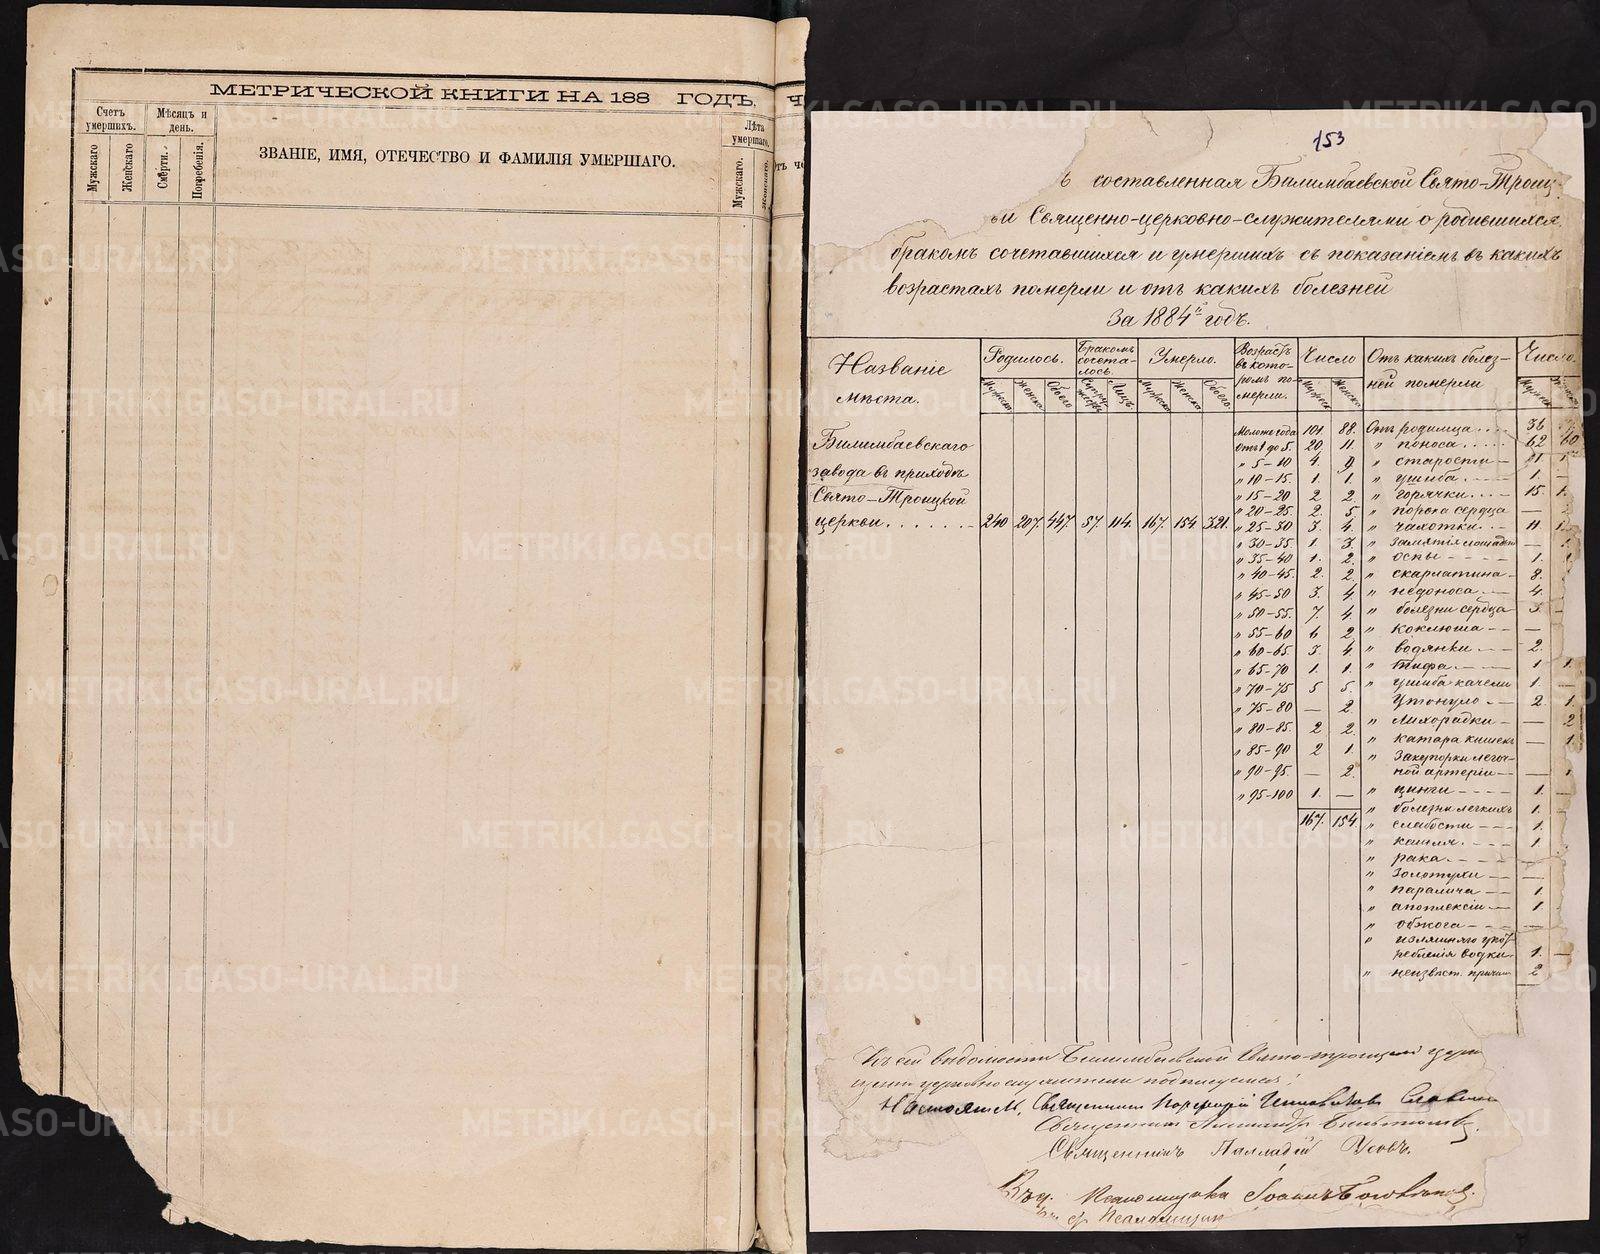 МЕТРИЧЕСКОЙ КНИГИ НА 188 ГОДЪ,
Счетъ умершихъ.
Мѣсяцъ и день.
Лѣта умершаго.
Мужскаго
Женскаго
Смерти.
Погребенія.
ЗВАНІЕ, ИМЯ, ОТЕЧЕСТВО И ФАМИЛІЯ УМЕРШАГО.
Мужскаго.
Женскаго.
153
ъ составленная Билимбаевской Свято-Троиц-
Священно-церковно-служителями о родившихся,
бракомъ сочетавшихся и умершихъ съ показаніемъ въ какихъ
возрастахъ померли и отъ какихъ болезней
За 1884й годъ.
Названіе мѣста.
Родилось.
Бракомъ сочета-лось.
Умерло.
Возрастъ въ кото-ромъ по-мерли.
Число
Отъ какихъ болез-ней померли
Число.
Мужеска Женска Обоего Супру-жествъ Лицъ Мужеска Женска Обоего. Мужеска Женска Мужеска
Билимбаевскаго
завода въ приходѣ
Свято-Троицкой
церкви . . . . . . . 240 207. 447. 57. 114. 167. 154. 321.
Моложе года 101. 88.
Отъ 1 до 5. 20. 11.
" 5-10 4. 9
" 10-15. 1. 1.
" 15-20 2 2.
" 20-25. 2. 5
" 25-30 3. 4.
" 30-35 1. 3.
" 35-40 1. 2.
" 40-45. 2. 2.
" 45-50 3. 4.
" 50-55. 7. 4.
" 55-60 6 2
" 60-65. 3. 4.
" 65-70 1. 1.
" 70-75 5 5.
" 75-80 — 2.
" 80-85. 2 2.
" 85-90 2 1.
" 90-95. — 2.
" 95-100 1. —
167. 154.
Отъ родимца . . . . 36
" поноса . . . . . 62 60
" старости —
" ушиба . . . . 1. —
" горячки . . . — 15.
" порока сердца —
" чахотки . . — 11.
" замятія лошадью —
" оспы — — — 1.
" скарлатина — 8.
" недоноса . — 4.
" болезни сердца 3.
" коклюша — — —
" водянки — — 2.
" тифа . — — 1 1.
" ушиба качели 1. —
Утонуло . — 2. 1.
" лихорадки — — 2
" катара кишекъ — 1.
" закупорки легоч-
ной артеріи — —
" цинги — — — 1. —
" болезни легкихъ 1.
" слабости — — 1.
" кашля . — — 1.
" рака . — — —
" золотухи — — —
" паралича — — 1.
" апоплексіи — 1.
" обжога — — —
" излишняго упот-
ребленія водки 1. —
" неизвѣст. причин 2
Къ сей вѣдомости Билимбаевской Свято-троицкой церк
церковнослужители подписуемся:
Настоятель, Священникъ Порфирій Славнин
Священникъ Александръ
Священникъ Палладій Усовъ.
Псаломщика Іоаннъ Боговъ
Псаломщик
METRIKI.GASO-URAL.RU